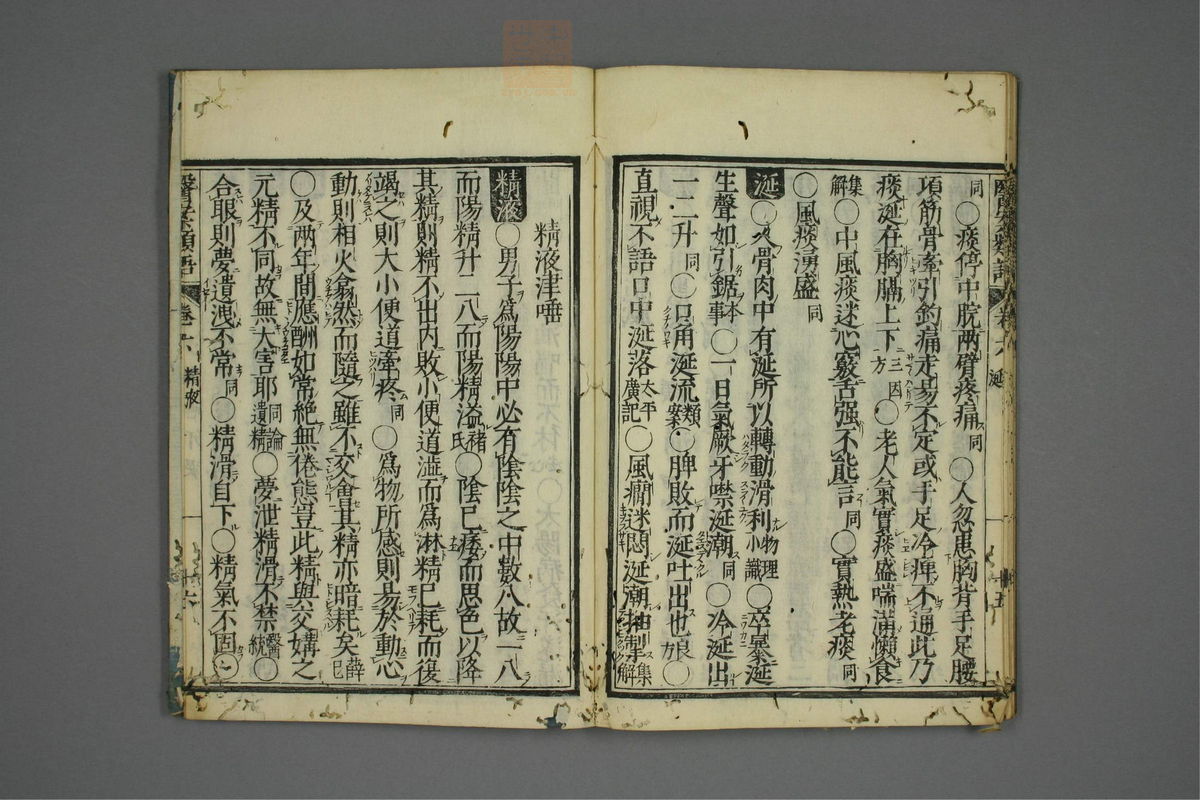 同○痰停中脘兩臂疼痛同○人忽患胸背手足腰
項筋骨牽引釣痛走易不定或手足冷痺不通此乃
痰涎在胸膈上下三因方○老人氣實痰盛喘滿懶食
集解○中風痰迷心竅舌强不能言同○實熱老痰同
○風痰湧盛同
涎○人骨肉中有涎所以轉動滑利物理小識○卒暴涎
生聲如引鋸本事○一日氣厥牙噤涎潮同○冷涎出
一二升同○口角涎流類案○脾敗而涎吐出也良方○
直視不語口中涎落太平廣記○風癇迷悶涎潮抽掣集解
醫學類語 卷六 涎 十五
精液津唾
精液○男子爲陽陽中必有陰陰之中數八故一八
而陽精升二八而陽精溢褚氏○陰已痿而思色以降
其精則精不出内敗小便道澁而爲淋精已耗而復
竭之則大小便道牽疼同○爲物所感則易於動心
動則相火翕然而隨之雖不交會其精亦暗耗矣薛已
○及兩年間應酬如常絶無倦態豈此精與交媾之
元精不同故無大害耶同論遺精○夢泄精滑不禁醫統○
合眼則夢遺洩不常同○精滑自下○精氣不固○
卷六 精液 十六